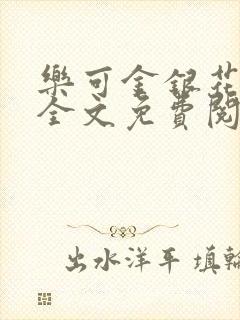 樂可金銀花
全文免費閱
出水洋平 填輪